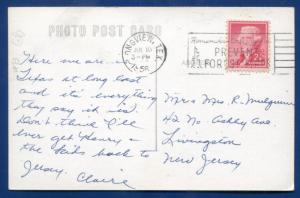 PHOTO POST CARD
LONGVIEW, TEX.
JUL 10
3-PM
1956
Remember
PREVENT
FOREST
Here we are –
Texas at long last
and it's everything
they say it is.
Don't think I'll
ever get Henry &
the kids back to
Jersey.
Claire
Mr & Mrs. R. Mulquinn
42 No. Ashby Ave
Livingston
New Jersey